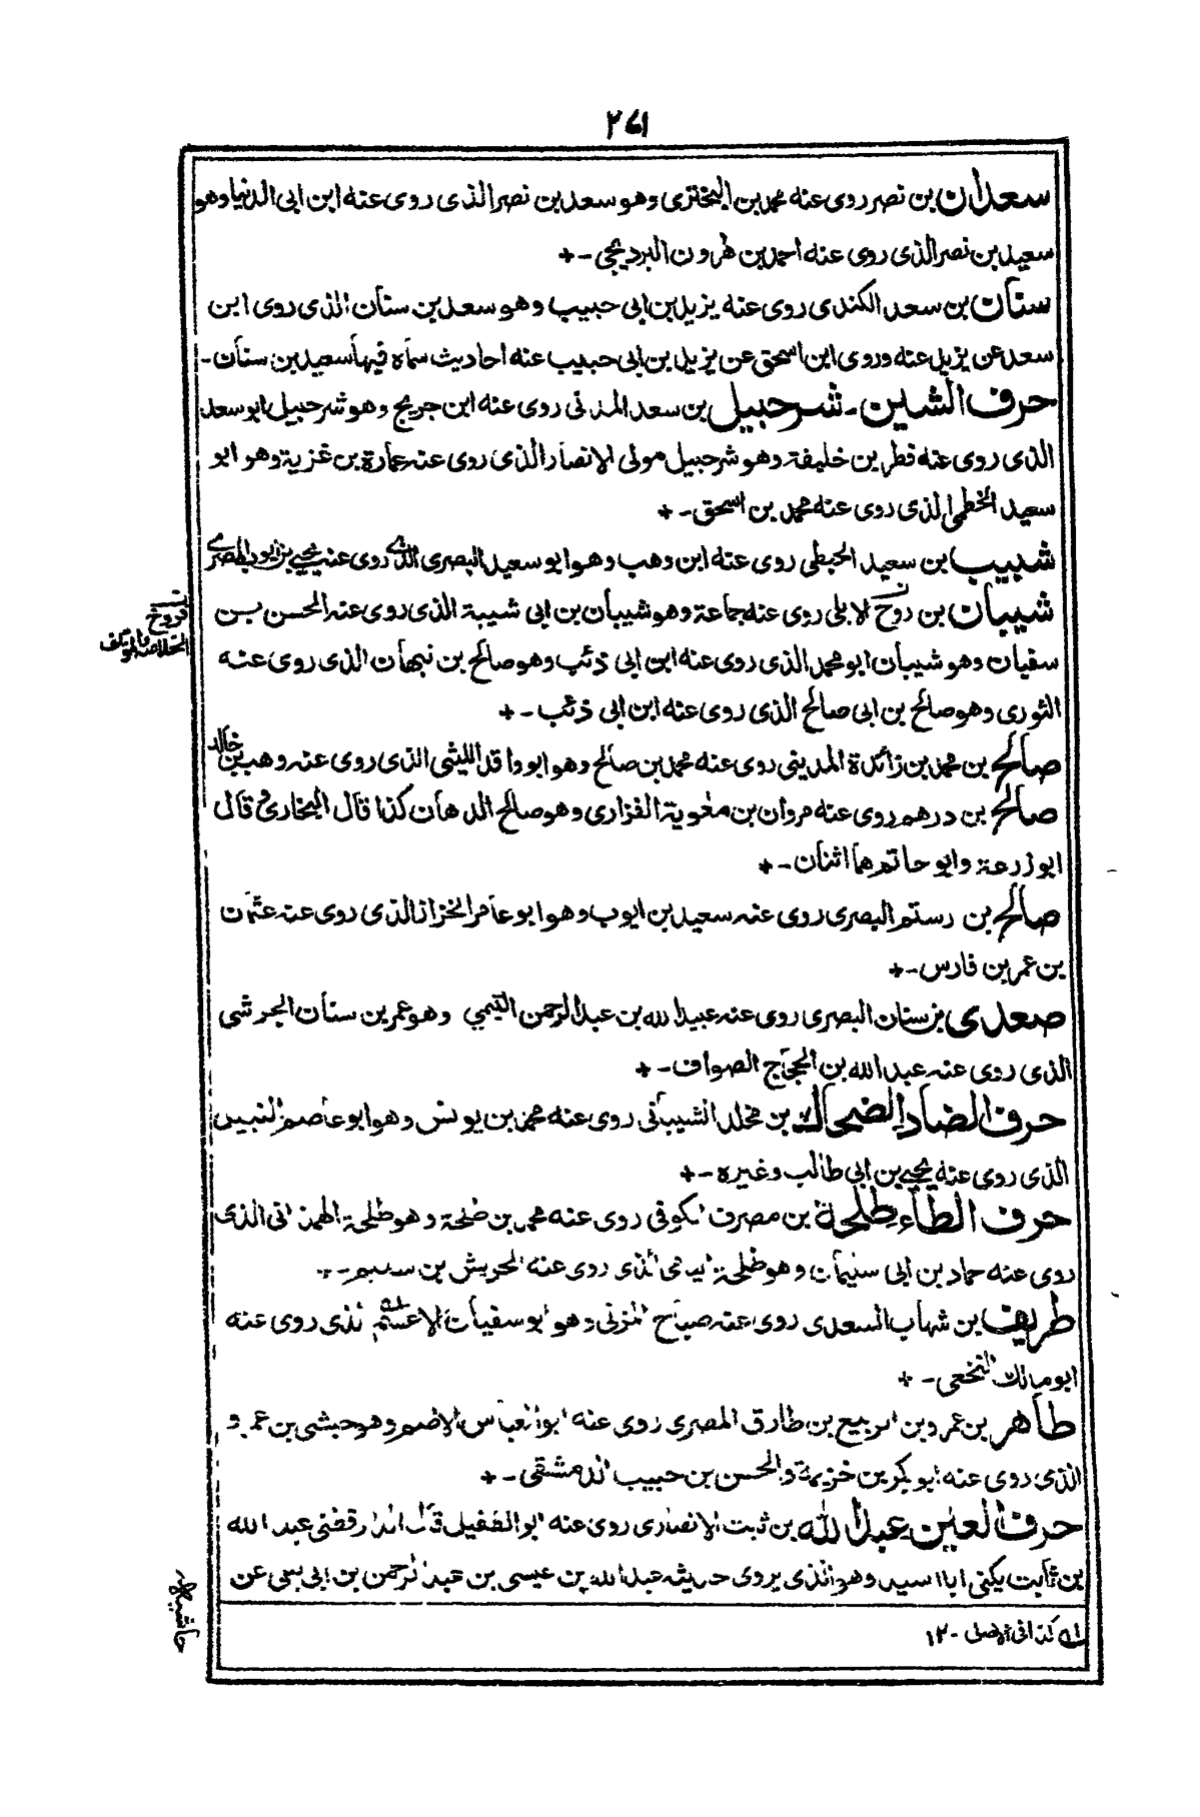 ٢٧١
سعدان بن نصر روى عنه محمد بن البختري وهو سعد بن نصر الذى روى عنه ابن ابى الدنيا وهو
سعيد بن نصر الذى روى عنه احمد بن هرون البرديجي -+
سنان بن سعد الكندى روى عنه يزيد بن ابى حبيب وهو سعد بن سنان الذى روى ابن
سعد عن يزيد عنه وروى ابن اسحق عن يزيد بن ابى حبيب عنه احاديث سماه فيها سعيد بن سنان -
حرف الشين - شرحبيل بن سعد المدنى روى عنه ابن جريج وهو شرحبيل ابو سعد
الذى روى عنه فطر بن خليفة وهو شرحبيل مولى الانصار الذى روى عنه عمارة بن غزية وهو ابو
سعيد الخطمى الذى روى عنه محمد بن اسحق -+
شبيب بن سعيد الحبطى روى عنه ابن وهب وهو ابو سعيد البصرى الذى روى عنه يحيى بن ايوب المصرى
شيبان بن روح الابلى روى عنه جماعة وهو شيبان بن ابى شيبة الذى روى عنه الحسن بن
سفيان وهو شيبان ابو محمد الذى روى عنه ابن ابى ذئب وهو صالح بن نبهان الذى روى عنه
الثورى وهو صالح بن ابى صالح الذى روى عنه ابن ابى ذئب -+
صالح بن محمد بن زائدة المدينى روى عنه محمد بن صالح وهو ابو واقد الليثى الذى روى عنه وهب بن خالد
صالح بن درهم روى عنه مروان بن معوية الفزارى وهو صالح الدهان كذا قال البخارى وقال
ابو زرعة وابو حاتم هما اثنان -+
صالح بن رستم البصرى روى عنه سعيد بن ايوب وهو ابو عامر الخزاز الذى روى عنه عثمان
بن عمر بن فارس -+
صعدى بن سنان البصرى روى عنه عبيد الله بن عبد الرحمن التيمي وهو عمر بن سنان الجرشى
الذى روى عنه عبد الله بن الحجاج الصواف -+
حرف الضاد الضحاك بن مخلد الشيبانى روى عنه محمد بن يونس وهو ابو عاصم النبيل
الذى روى عنه يحيى بن ابى طالب وغيره -+
حرف الطاء طلحة بن مصرف الكوفى روى عنه محمد بن طلحة وهو طلحة الهمدانى الذى
روى عنه حماد بن ابى سليمان وهو طلحة اليامى الذى روى عنه الحريش بن سليم -+
طريف بن شهاب السعدى روى عنه صباح المزنى وهو ابو سفيان الاعسم الذى روى عنه
ابو مالك النخعى -+
طاهر بن عمرو بن الربيع بن طارق المصرى روى عنه ابو العباس الاصم وهو حبشى بن عمرو
الذى روى عنه ابو بكر بن خزيمة والحسن بن حبيب الدمشقى -+
حرف العين عبد الله بن ثابت الانصارى روى عنه ابو الطفيل قال الدارقطنى عبد الله
بن ثابت يكنى ابا اسيد وهو الذى يروى حديثه عبد الله بن عيسى بن عبد الرحمن بن ابى ليلى عن
له كذا فى الاصل - ١٢
فروخ
حاشيه